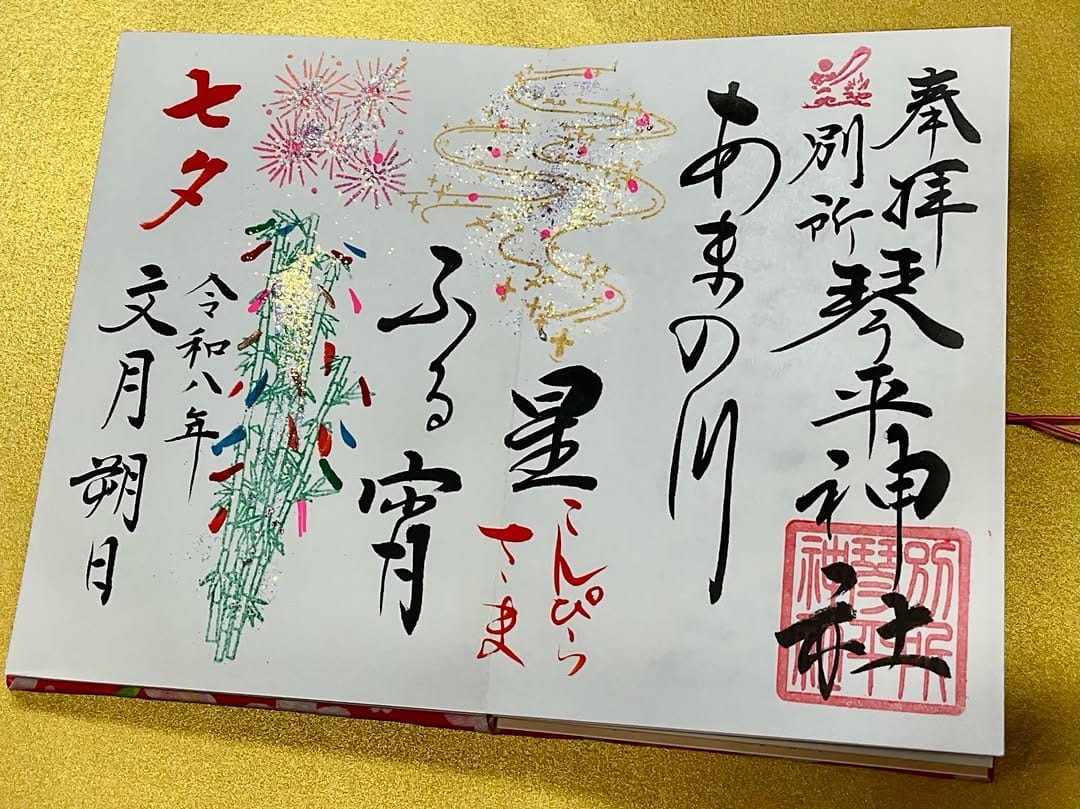 奉拝
別所琴平神社
別所琴平神社
あまの川
星
こんぴら
さま
ふる宵
令和八年
文月朔日
七夕